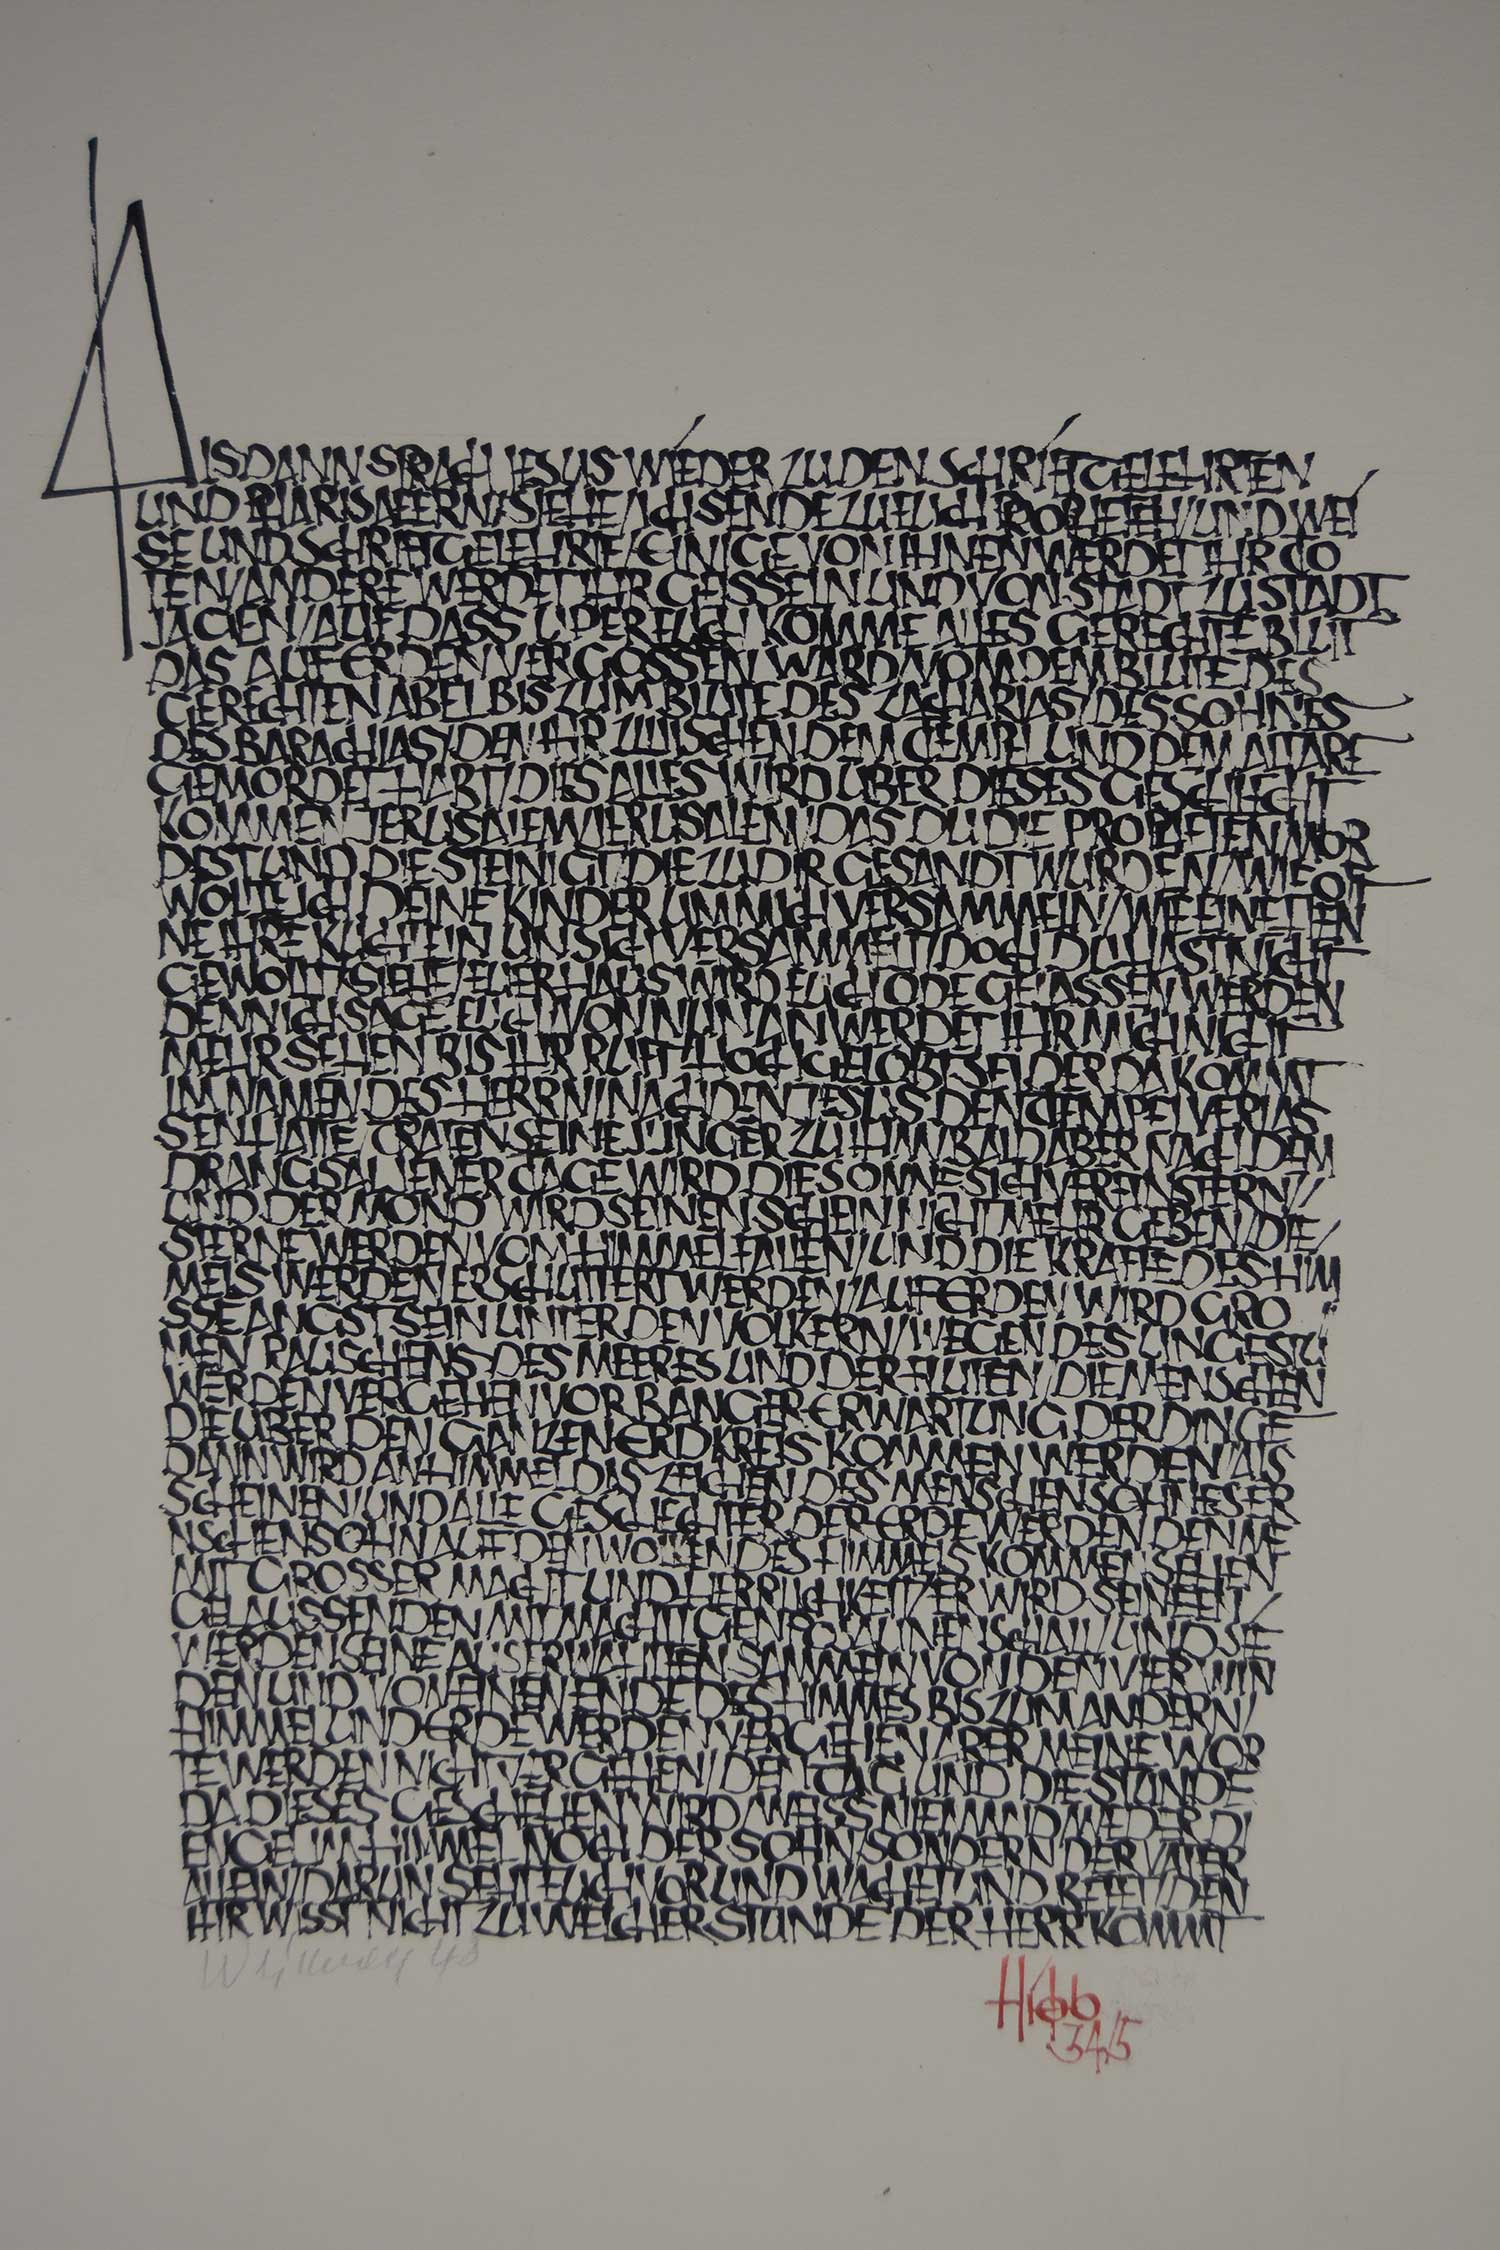 ALSDANN SPRACH JESUS WIEDER ZU DEN SCHRIFTGELEHRTEN
UND PHARISAEERN // SIEHE / ICH SENDE ZU EUCH PROPHETEN / UND WEI
SE UND SCHRIFTGELEHRTE / EINIGE VON IHNEN WERDET IHR TÖ
TEN / ANDERE WERDET IHR GEISSELN UND VON STADT ZU STADT
JAGEN / AUF DASS ÜBER EUCH KOMME ALLES GERECHTE BLUT
DAS AUF ERDEN VERGOSSEN WARD / VOM DEM BLUTE DES
GERECHTEN ABEL BIS ZUM BLUTE DES ZACHARIAS / DES SOHNES
DES BARACHIAS / DEN IHR ZWISCHEN DEM TEMPEL UND DEM ALTARE
GEMORDET HABT / DIES ALLES WIRD ÜBER DIESES GESCHLECHT
KOMMEN JERUSALEM / JERUSALEM / DAS DU DIE PROPHETEN MOR
DEST UND DIE STEINIGT / DIE ZU DIR GESANDT WURDEN / WIE OFT
WOLLTE ICH DEINE KINDER UM MICH VERSAMMELN / WIE EINE HEN
NE IHRE KÜCHLEIN UM SICH VERSAMMELT / DOCH DU HAST NICHT
GEWOLLT / SIEHE / EUER HAUS WIRD EUCH ÖDE GELASSEN WERDEN
DENN ICH SAGE EUCH / VON NUN AN WERDET IHR MICH NICHT
MEHR SEHEN BIS IHR RUFT / HOCHGELOBT SEI DER DA KOMMT
IM NAMEN DES HERRN / NACHDEM JESUS DEN TEMPEL VERLAS
SEN HATTE / TRATEN SEINE JÜNGER ZU IHM / BALD ABER NACH DEM
DRANGSAL JENER TAGE WIRD DIE SONNE SICH VERFINSTERN //
UND DER MOND WIRD SEINEN SCHEIN NICHT MEHR GEBEN / DIE /
STERNE WERDEN VOM HIMMEL FALLEN / UND DIE KRÄFTE DES HIM
MELS WERDEN ERSCHÜTTERT WERDEN / AUF ERDEN WIRD GRO
SSE ANGST SEIN UNTER DEN VÖLKERN / WEGEN DES UNGESTÜ
MEN RAUSCHENS DES MEERES UND DER FLUTEN / DIE MENSCHEN
WERDEN VERGEHEN VOR BANGER ERWARTUNG DER DINGE
DIE ÜBER DEN GANZEN ERDKREIS KOMMEN WERDEN / ALS
DANN WIRD AN HIMMEL DAS ZEICHEN DES MENSCHENSOHNES ER
SCHEINEN / UND ALLE GESCHLECHTER DER ERDE WERDEN DEN ME
NSCHENSOHN AUF DEN WOLKEN DES HIMMELS KOMMEN SEHEN
MIT GROSSER MACHT UND HERRLICHKEIT / ER WIRD SEINE EN /
GEL AUSSENDEN MIT MÄCHTIGEN POSAUNENSCHALL / UND SIE
WERDEN SEINE AUSERWÄHLTEN SAMMELN VON DEN VIER WIN
DEN UND VON EINEN ENDE DES HIMMES BIS ZUM ANDERN /
HIMMEL UND ERDE WERDEN VERGEHEN / ABER MEINE WOR
TE WERDEN NICHT VERGEHEN / DEN TAG UND DIE STUNDE
DA DIESES GESCHEHEN WIRD / WEISS NIEMAND / WEDER DI
ENGEL IM HIMMEL NOCH DER SOHN / SONDERN DER VATER
ALLEIN / DARUM SEHT EUCH VOR UND WACHET UND BETET / DEN
IHR WISST NICHT ZU WELCHER STUNDE DER HERR KOMMT
Hiob
34,5